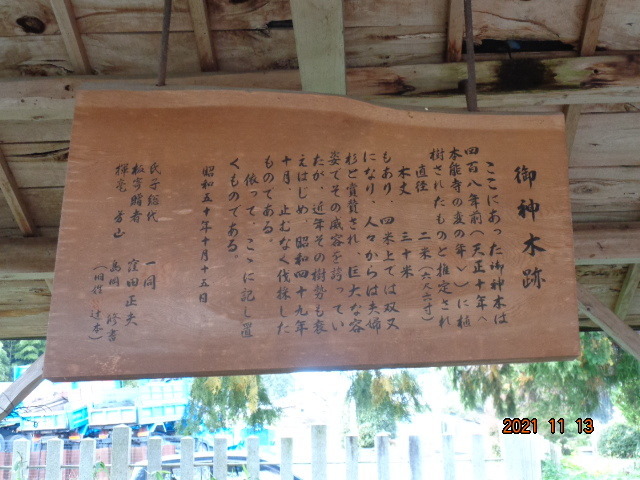 御神木跡
ここにあった御神木は
四百八年前(天正十年へ
本能寺の変の年〉)に植
樹されたものと推定され
直径 二米(六尺六寸)
本丈 三十米
もあり、四米上ては双又
になり、人々からは夫婦
杉と賞賛され、巨大な容
姿でその威容を誇ってい
たが、近年その樹勢も衰
えはじめ、昭和四十九年
十月、止むなく伐採した
ものである。
依って、こゝに記し置
くものである。
昭和五十年十月十五日
氏子総代 一同
板寄贈者 窪田正夫
揮毫 書
2021 11 13